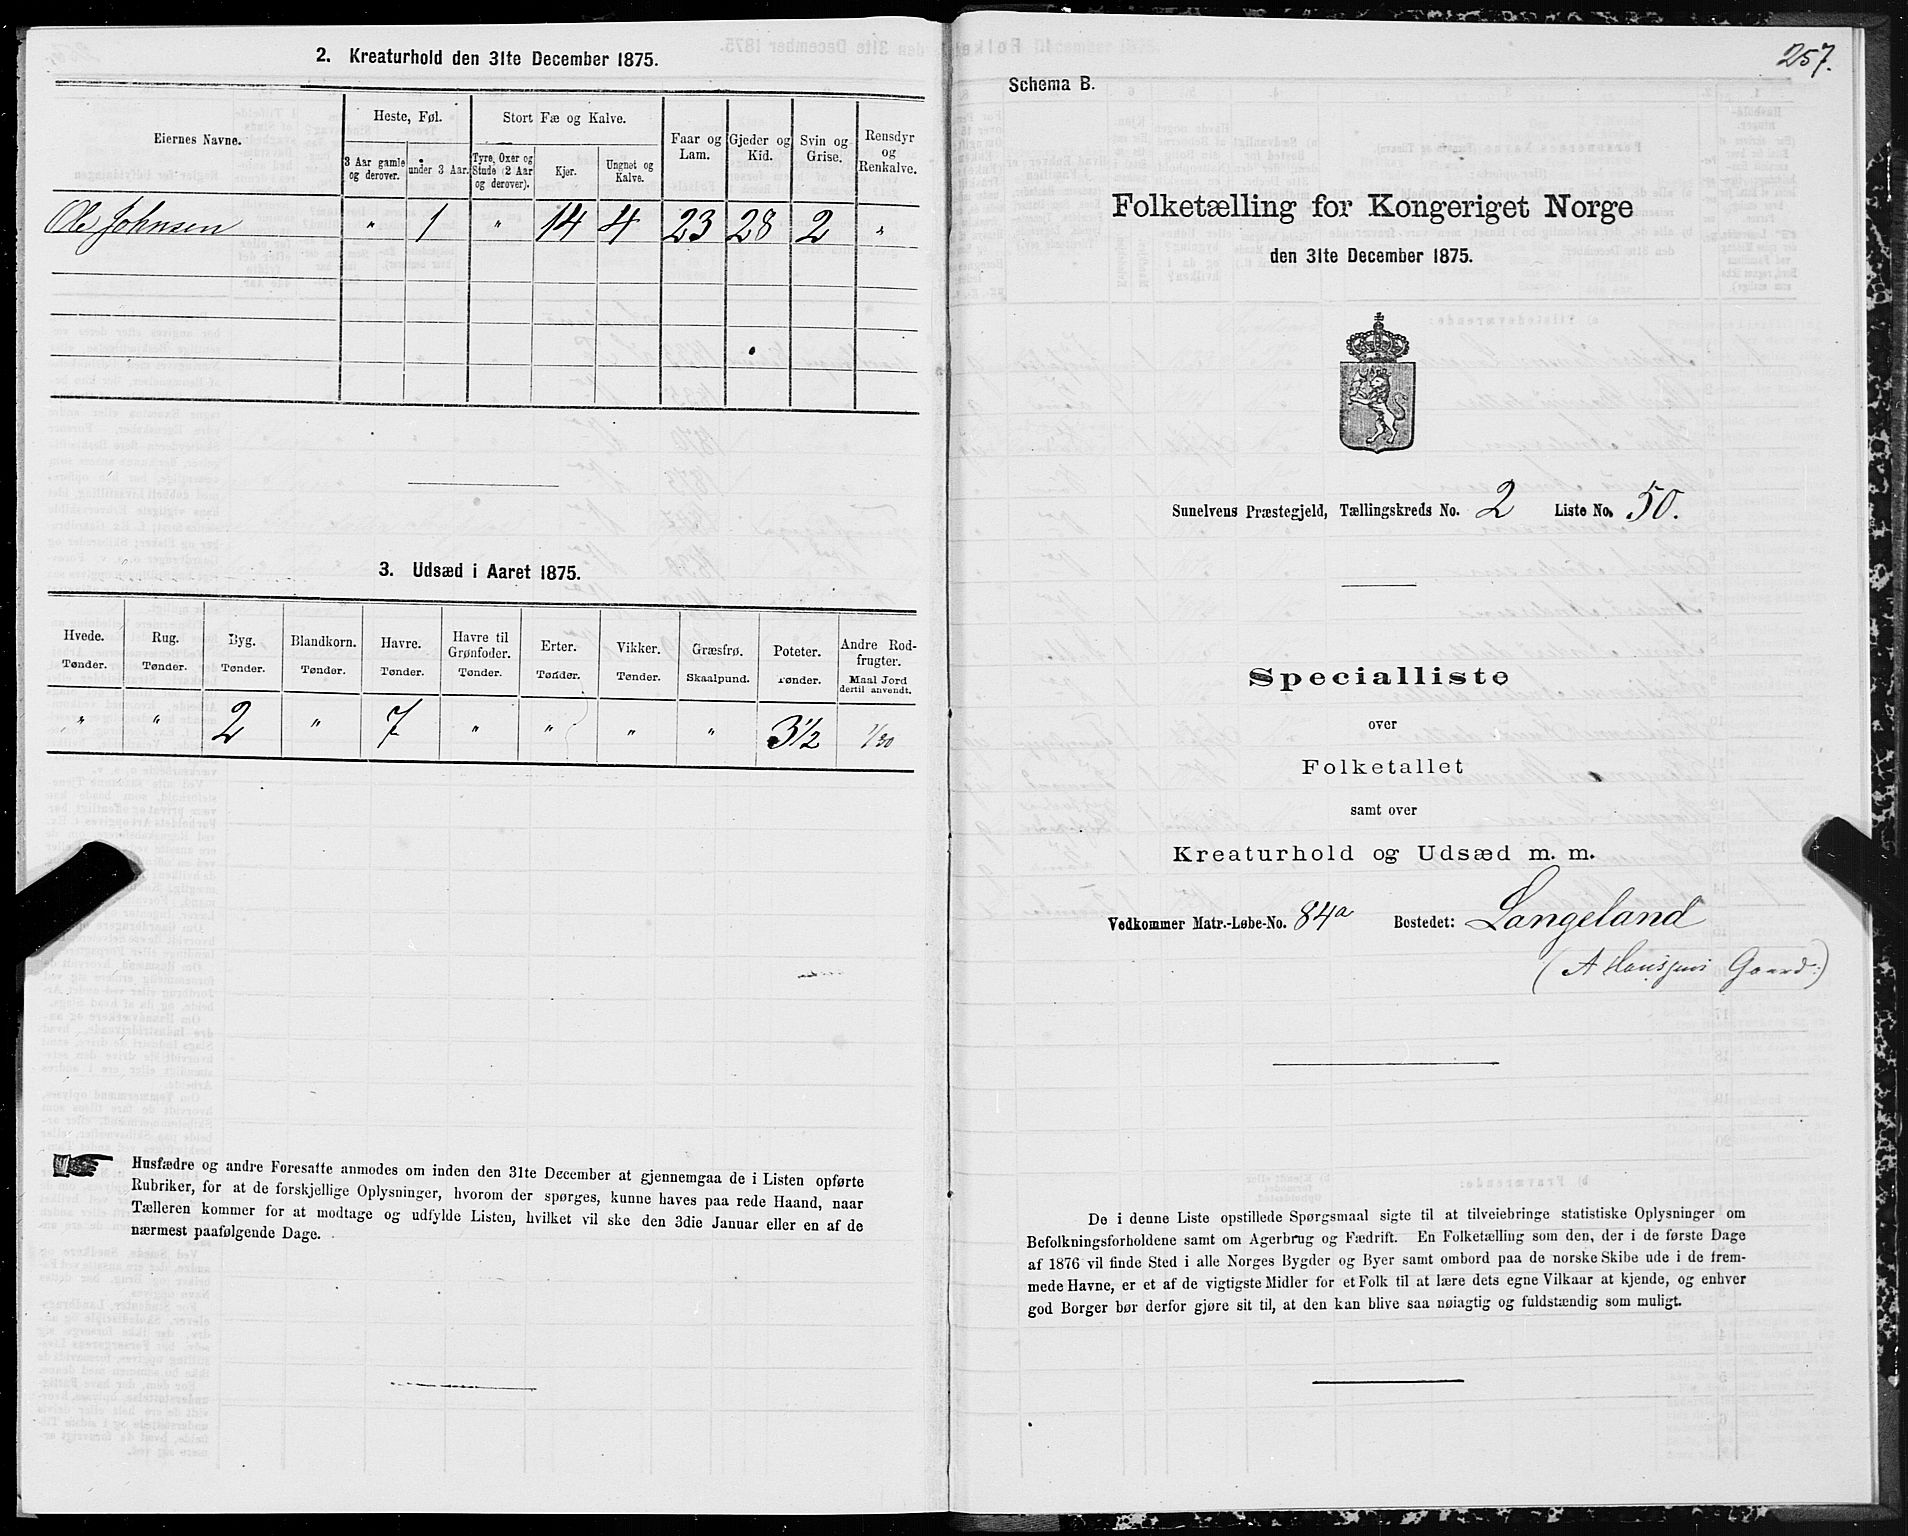 2. Kreaturhold den 31te December 1875.
Eiernes Navne.
Heste, Føl.
Stort Fæ og Kalve.
Faar og Lam.
Gjeder og Kid.
Svin og Grise.
Rensdyr og Renkalve.
3 Aar gamle og derover.
under 3 Aar.
Tyre, Oxer og Stude (2 Aar og derover).
Kjør.
Ungnøt og Kalve.
Ole Johnsen " 1 " 14 4 23 28 2 "
3. Udsæd i Aaret 1875.
Hvede. Rug. Byg. Blandkorn. Havre. Havre til Grønfoder. Erter. Vikker. Græsfrø. Poteter. Andre Rodfrugter.
Tønder. Tønder. Tønder. Tønder. Tønder. Tønder. Tønder. Tønder. Skaalpund. Tønder. Maal Jord dertil anvendt.
" " 2 " 7 " " " " 3½ 1/20
Husfædre og andre Foresatte anmodes om inden den 31te December at gjennemgaa de i Listen opførte
Rubriker, for at de forskjellige Oplysninger, hvorom der spørges, kunne haves paa rede Haand, naar
Tælleren kommer for at modtage og udfylde Listen, hvilket vil ske den 3die Januar eller en af de
nærmest paafølgende Dage.
257.
Schema B.
Folketælling for Kongeriget Norge
den 31te December 1875.
Sunelvens Præstegjeld, Tællingskreds No. 2 Liste No. 50.
Specialliste
over
Folketallet
samt over
Kreaturhold og Udsæd m. m.
Vedkommer Matr.-Løbe-No. 84a Bostedet: Langeland
(A Hansjens Gaard:)
De i denne Liste opstillede Spørgsmaal sigte til at tilveiebringe statistiske Oplysninger om
Befolkningsforholdene samt om Agerbrug og Fædrift. En Folketælling som den, der i de første Dage
af 1876 vil finde Sted i alle Norges Bygder og Byer samt ombord paa de norske Skibe ude i de frem-
mede Havne, er et af de vigtigste Midler for et Folk til at lære dets egne Vilkaar at kjende, og enhver
god Borger bør derfor gjøre sit til, at den kan blive saa nøiagtig og fuldstændig som muligt.